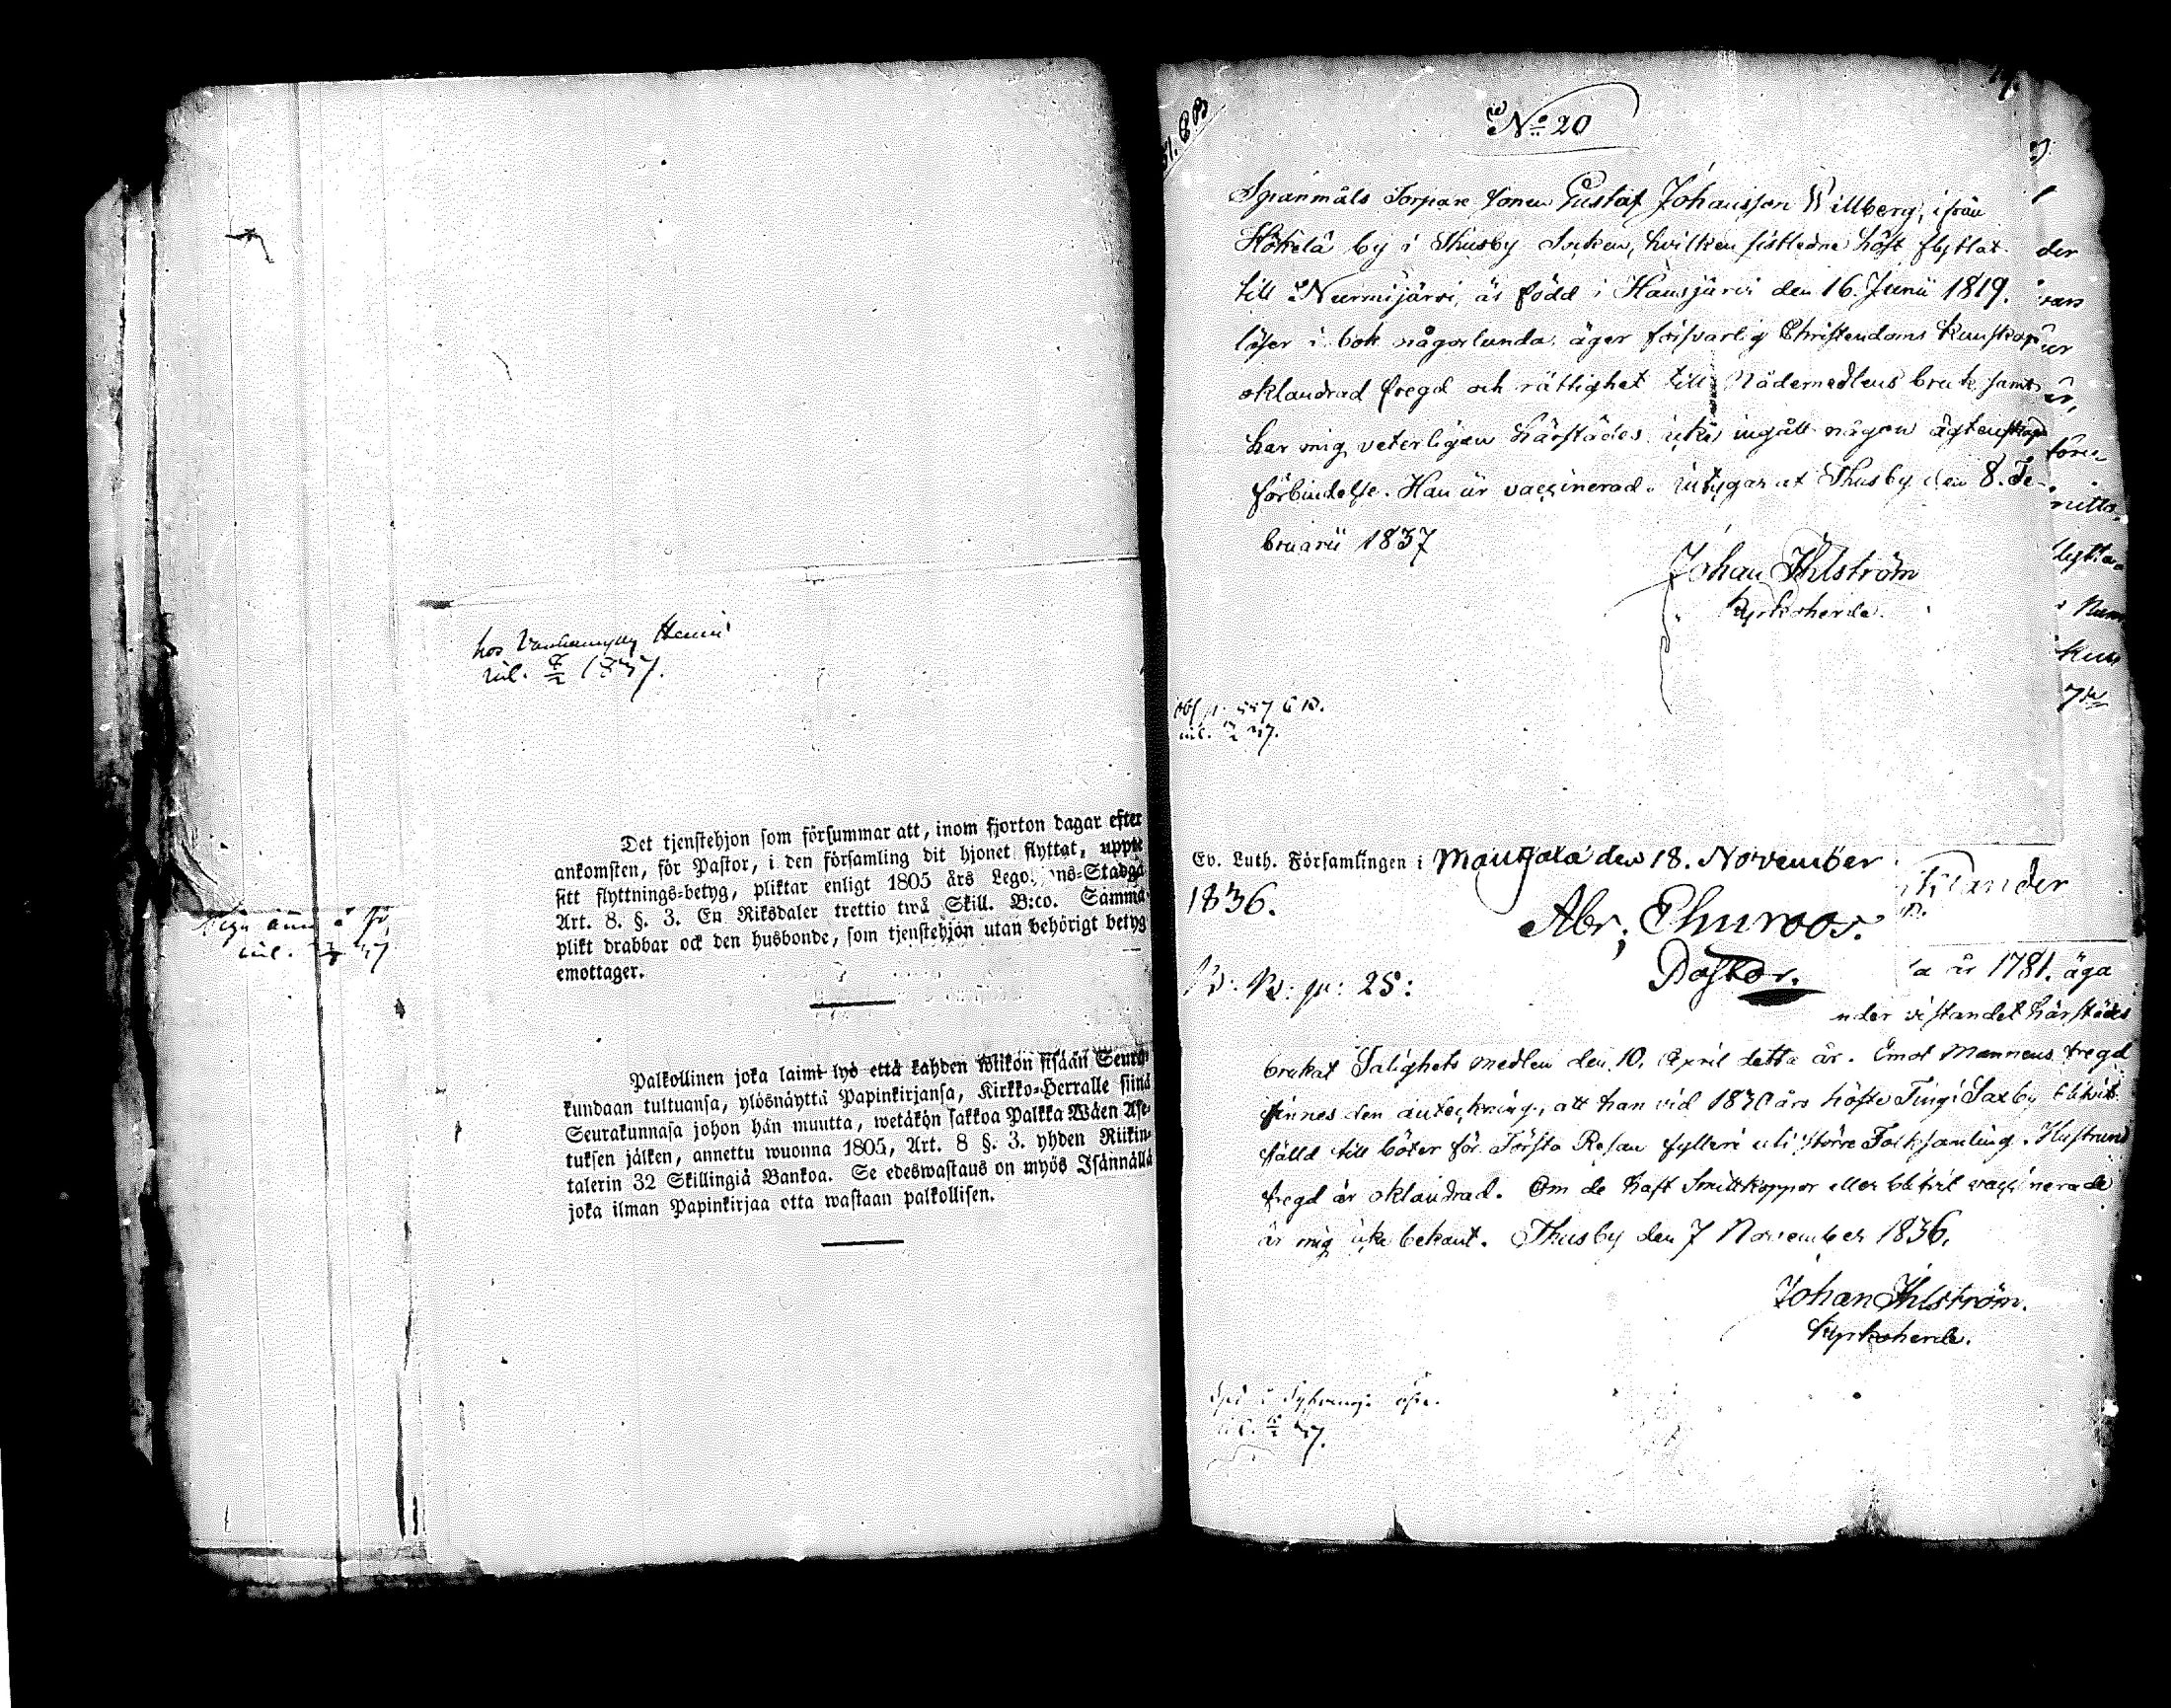 hos Vanhamylly Henric
inl. 1837.
Det tjenstehjon som försummar att, inom fjorton dagar efter
ankomsten, för Pastor, i den församling dit hjonet flyttat, uppte
sitt flyttnings-betyg, pliktar enligt 1805 års Lego ns-Stadga
Art. 8. §. 3. En Riksdaler trettio två Skill. B:co. Samma
plikt drabbar ock den husbonde, som tjenstehjon utan behörigt betyg
emottager.
Palkollinen joka laimi lyö että kahden wiikon sisään Seura-
kundaan tultuansa, ylösnäyttä Papinkirjansa, Kirkko-Herralle siinä
Seurakunnasa johon hän muutta, wetäkön sakkoa Palkka Wäen Ase-
tuksen jälken, annettu wuonna 1805, Art. 8 §. 3. yhden Riikin-
talerin 32 Skillingiä Bankoa. Se edeswastaus on myös Isännällä
joka ilman Papinkirjaa otta wastaan palkollisen.
No 20
Spanmåls Torpare sonen Gustaf Johansson Willberg, ifrån
Hökelä by i Thusby Socken, hvilken sistledne höst flyttat
till Nurmijärvi, är född i Hausjärvi den 16. Junii 1819.
läser i bok någorlunda, äger försvarlig Christendoms kunskap
oklandrad fregd och rättighet till Nådemedlens bruk samt
har mig veterligen härstädes icke ingått någon ägtenskaps
förbindelse. Han är vaccinerad. intygar at Thusby den 8. Fe-
bruarii 1837
Johan Ihlström
Kyrkoherde.
der
lytta
Ev. Luth. Församlingen i Mautjala den 18. November
1836.
Abr; Churoos.
Pastor.
lander
25:
a år 1781. äga
nder vistandet härstädes
brukat Salighets medlen den 10. April detta år. Emot Mannens fregd
finnes den anteckning, att han vid 1830 års höste Ting i Saxby blifvit
fälld till böter för Första Resan fylleri uti större Folksamling. Hustruns
fregd är oklandrad. Om de haft Smittkoppor eller blifvit vaccinerade
är mig icke bekant. Thusby den 7 November 1836.
Johan Ihlström.
Kyrkoherde.